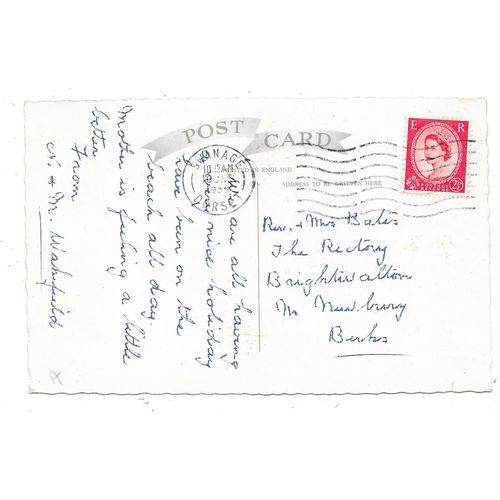 POST CARD
PRINTED IN ENGLAND
ADDRESS TO BE WRITTEN HERE
SWANAGE
10 15 AM
DORSET
E R
POSTAGE REVENUE
2½
We are all having
a very nice holiday
have been on the
beach all day
Mother is feeling a little
better
From
N. & M. Wakefield
x
Rev. & Mrs Bates
The Rectory
Brightwalton
Nr Newbury
Berks